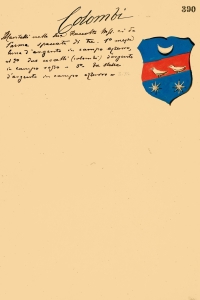 390
Colombi
nella sua Raccolta Mss. ci dà
l'arma spaccata di tre. 1° mezza
luna d'argento in campo azzurro,
al 2° due uccelli (colombi) d'argento
in campo rosso e 3° due stelle
d'argento in campo azzurro